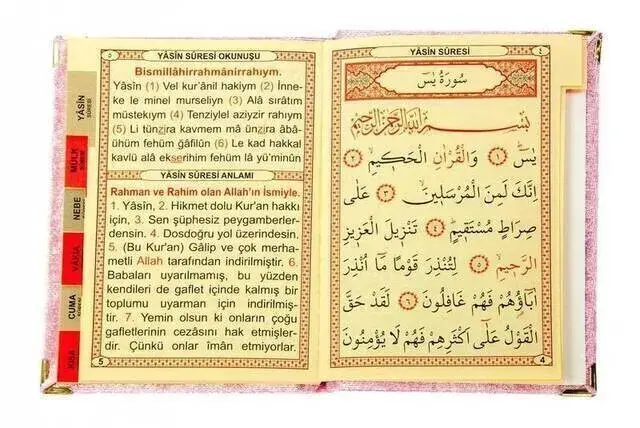 ٥
YÂSİN SÛRESİ OKUNUŞU
Bismillâhirrahmânirrahıym.
Yâsîn (1) Vel kur'ânil hakiym (2) İnne-
ke le minel murseliyn (3) Alâ sırâtım
müstekıym (4) Tenziylel aziyzir rahıym
(5) Li tünzira kavmem mâ ünzira âbâ-
ühüm fehüm gâfilûn (6) Le kad hakkal
kavlü alâ ekserihim fehüm lâ yü'minûn
YÂSİN SÛRESİ ANLAMI
Rahman ve Rahim olan Allah'ın İsmiyle.
1. Yâsîn, 2. Hikmet dolu Kur'an hakkı
için, 3. Sen şüphesiz peygamberler-
densin. 4. Dosdoğru yol üzerindesin.
5. (Bu Kur'an) Gâlip ve çok merha-
metli Allah tarafından indirilmiştir. 6.
Babaları uyarılmamış, bu yüzden
kendileri de gaflet içinde kalmış bir
toplumu uyarman için indirilmiş-
tir. 7. Yemin olsun ki onların çoğu
gafletlerinin cezasını hak etmişler-
dir. Çünkü onlar îman etmiyorlar.
5
YÂSİN
SÛRESİ
MÜLK
SÛRESİ
NEBE
VAKIA
CUMA
KISA
YÂSİN SÛRESİ
٤
سُورَةُ يٰسٓ
بِسْمِ اللّٰهِ الرَّحْمٰنِ الرَّحِيمِ
يٰسٓ ﴿١﴾ وَالْقُرْاٰنِ الْحَكِيمِ ﴿٢﴾
اِنَّكَ لَمِنَ الْمُرْسَلِينَ ﴿٣﴾ عَلٰى
صِرَاطٍ مُسْتَقِيمٍ ﴿٤﴾ تَنْزِيلَ الْعَزِيزِ
الرَّحِيمِ ﴿٥﴾ لِتُنْذِرَ قَوْمًا مَٓا اُنْذِرَ
اٰبَٓاؤُهُمْ فَهُمْ غَافِلُونَ ﴿٦﴾ لَقَدْ حَقَّ
الْقَوْلُ عَلٰٓى اَكْثَرِهِمْ فَهُمْ لَا يُؤْمِنُونَ
4